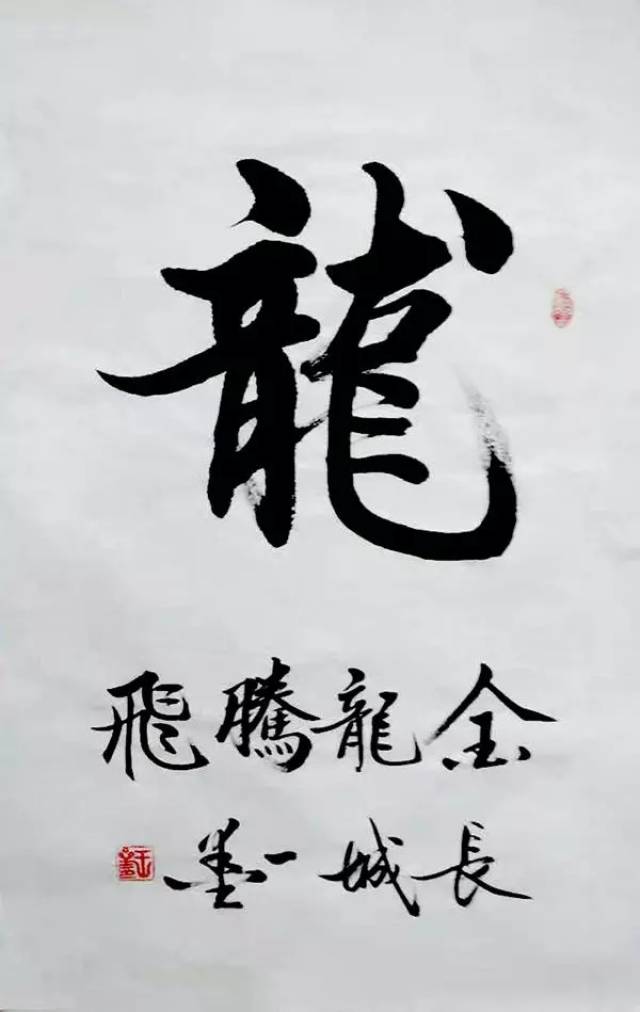 龍
金龍騰飛
長城一墨